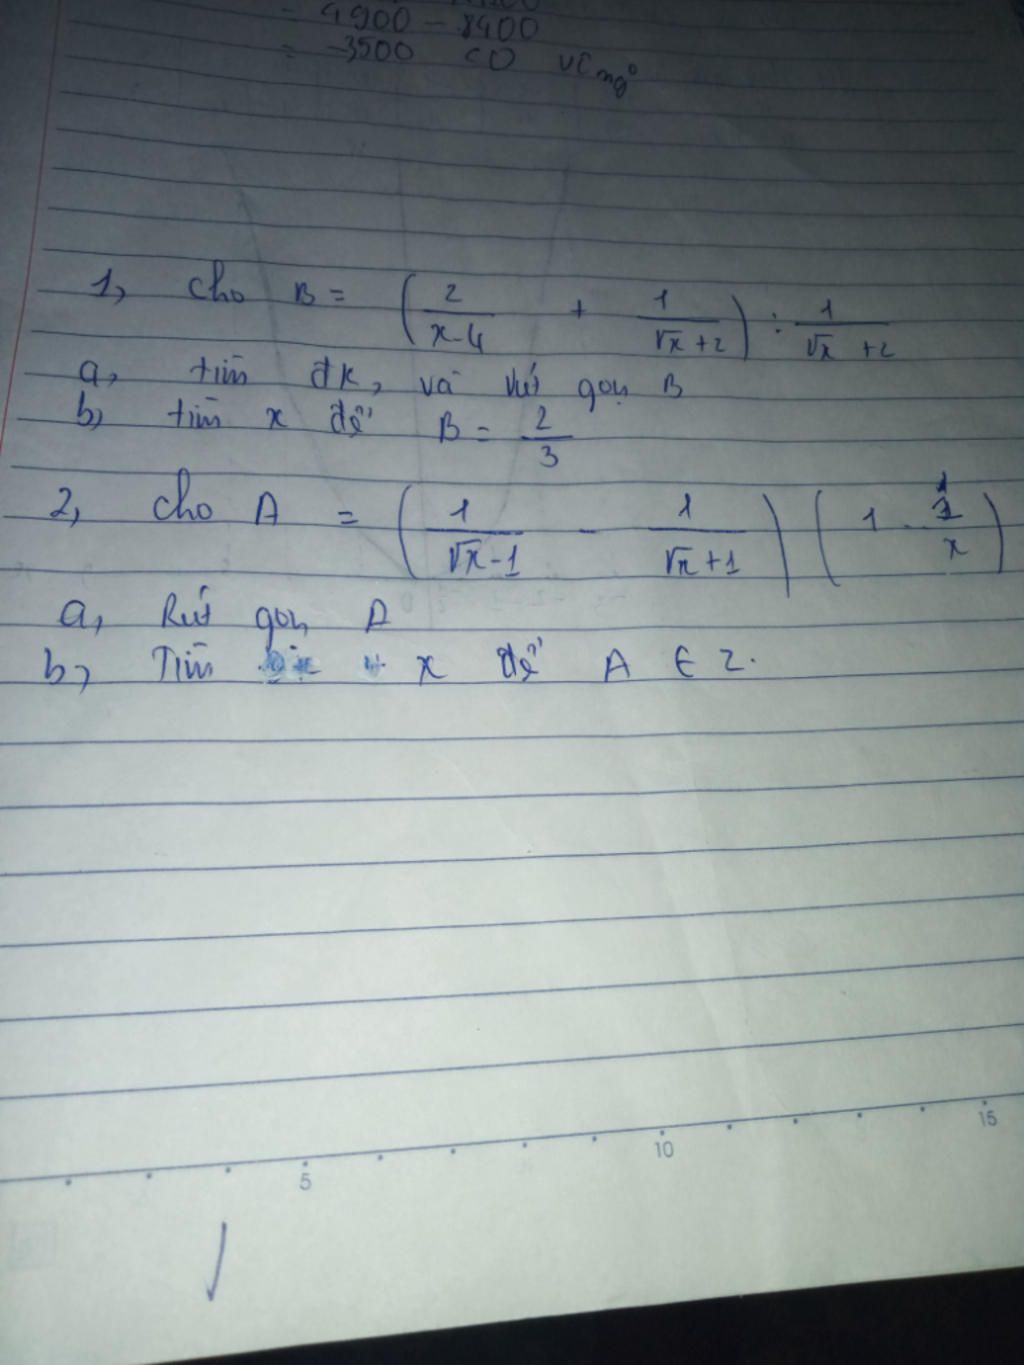 = 4900 - 8400
= -3500 < 0 VCmg⁰
1, cho B = (2/(x-4) + 1/(√x+2)) : 1/(√x+2)
a, tìm đk, và rút gọn B
b, tìm x để B = 2/3
2, cho A = (1/(√x-1) - 1/(√x+1)) (1 - 1/x)
a, Rút gọn A
b, Tìm x để A ∈ Z.
5 10 15